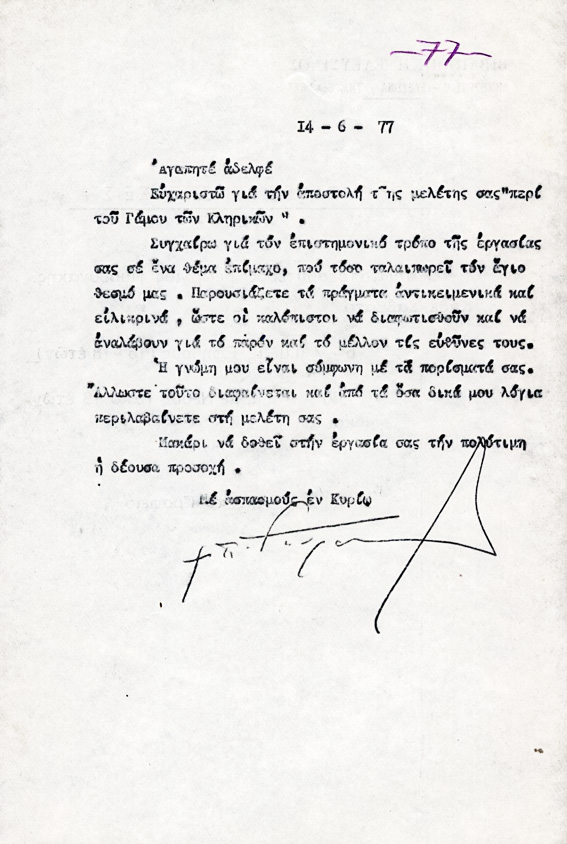 —77—
14 - 6 - 77
Ἀγαπητέ ἀδελφέ
Εὐχαριστῶ γιά τήν ἀποστολή τῆς μελέτης σας "περί
τοῦ Γάμου τῶν Κληρικῶν" .
Συγχαίρω γιά τόν ἐπιστημονικό τρόπο τῆς ἐργασίας
σας σέ ἕνα θέμα ἐπίμαχο, πού τόσο ταλαιπωρεῖ τόν ἅγιο
θεσμό μας . Παρουσιάζετε τά πράγματα ἀντικειμενικά καί
εἰλικρινά , ὥστε οἱ καλόπιστοι νά διαφωτισθοῦν καί νά
ἀναλάβουν γιά τό παρόν καί τό μέλλον τίς εὐθῦνες τους.
Ἡ γνώμη μου εἶναι σύμφωνη μέ τά πορίσματά σας.
Ἄλλωστε τοῦτο διαφαίνεται καί ἀπό τά ὅσα δικά μου λόγια
περιλαβαίνετε στή μελέτη σας .
Μακάρι νά δοθεῖ στήν ἐργασία σας τήν πολύτιμη
ἡ δέουσα προσοχή .
Μέ ἀσπασμούς ἐν Κυρίῳ